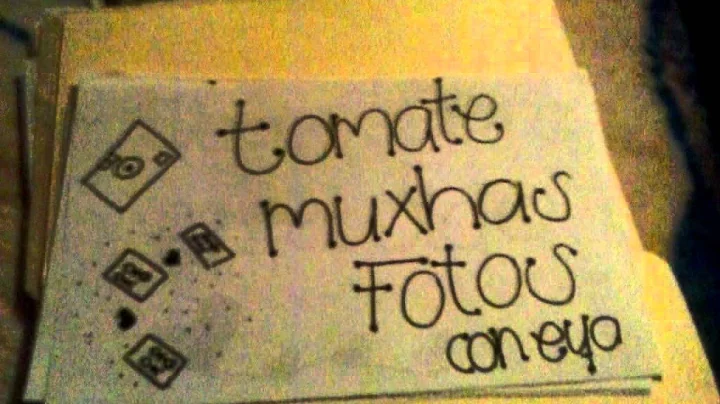 tomate
muxhas
Fotos
con eya